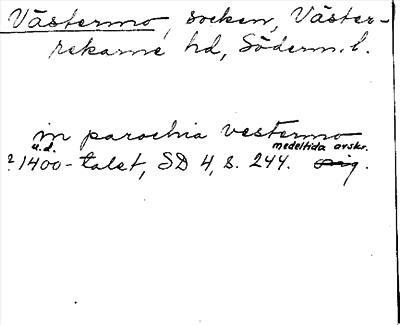 Västermo, socken, Väster-
rekarne hd, Söderm. l.
in parochia vestermo
u.d. medeltida avskr.
? 1400-talet, SD 4, s. 244. orig.